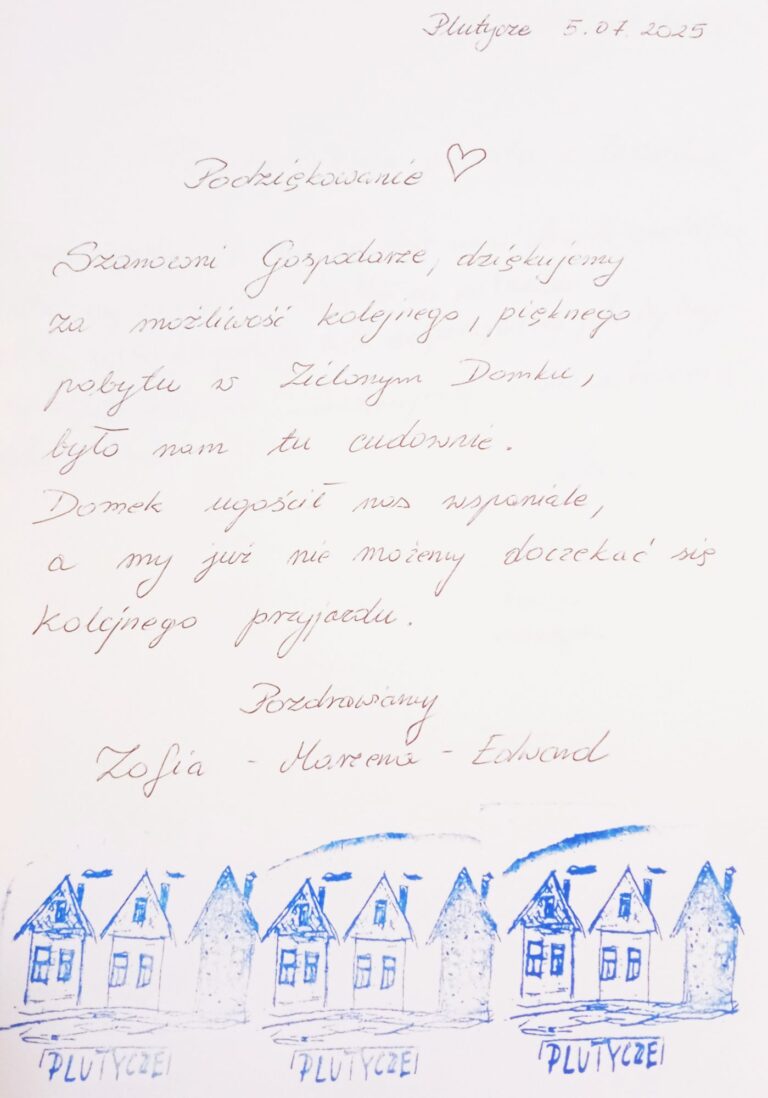 Plutycze 5.07.2025
Podziękowanie ♡
Szanowni Gospodarze, dziękujemy
za możliwość kolejnego, pięknego
pobytu w Zielonym Domku,
było nam tu cudownie.
Domek ugościł nas wspaniale,
a my już nie możemy doczekać się
kolejnego przyjazdu.
Pozdrawiamy
Zofia - Marzena - Edward
PLUTYCZE PLUTYCZE PLUTYCZE